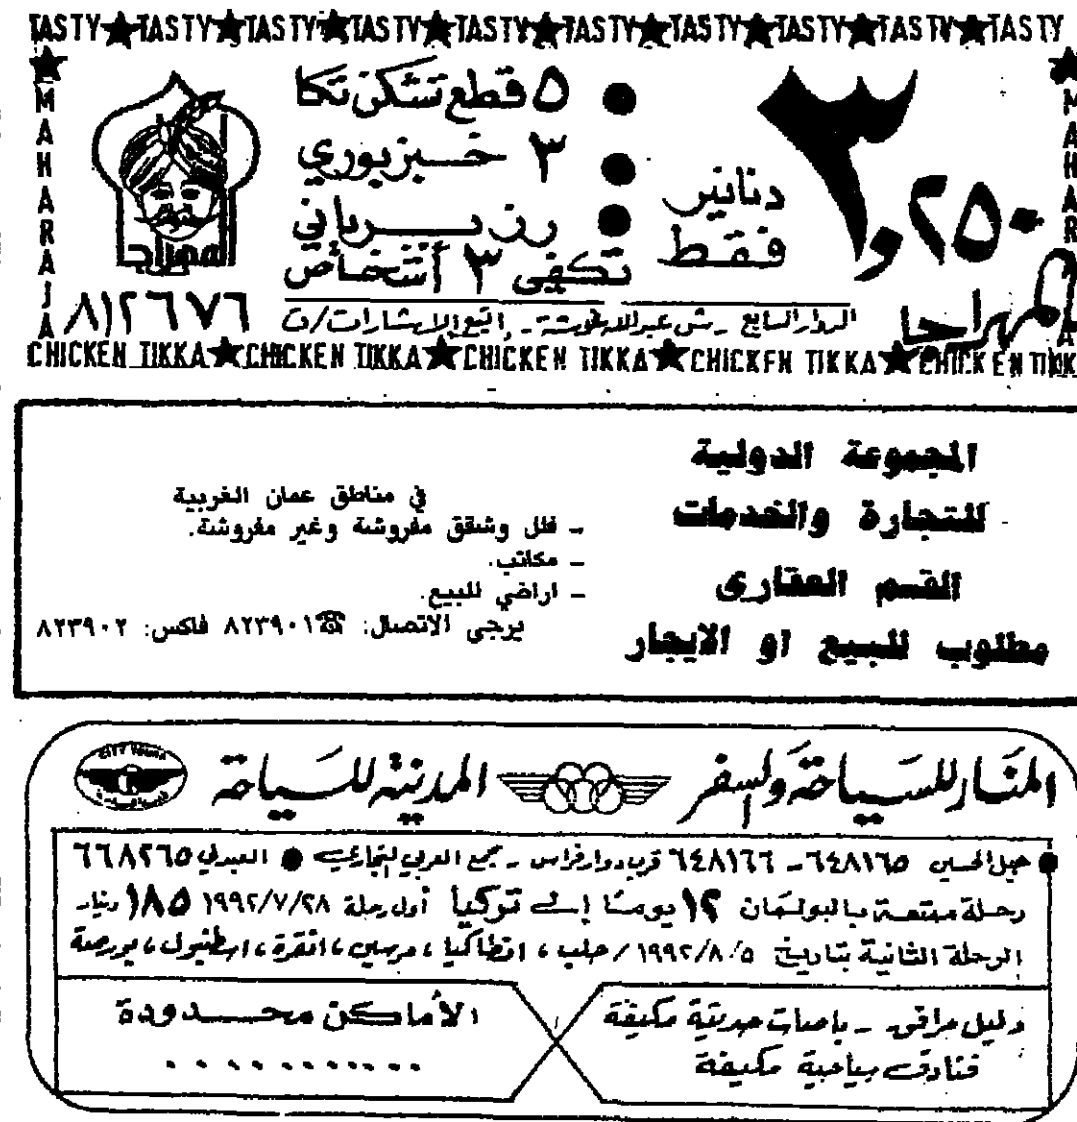 TASTY★TASTY★TASTY★TASTY★TASTY★TASTY★TASTY★TASTY★TASTY★TASTY
MAHARAJA
٣,٢٥٠
دنانير
فقط
● ٥ قطع تشكن تكا
● ٣ خبز بوري
● رز برياني
تكفي ٣ أشخاص
المهراجا
MAHARAJA
المهراجا
الدوار السابع - ش عبدالله غوشة - إتبع الإشارات/ت
٨١٢٦٧٦
CHICKEN TIKKA★CHICKEN TIKKA★CHICKEN TIKKA★CHICKEN TIKKA★CHICKEN TIKK
المجموعة الدولية
للتجارة والخدمات
القسم العقاري
مطلوب للبيع او الايجار
في مناطق عمان الغربية
- فلل وشقق مفروشة وغير مفروشة.
- مكاتب.
- اراضي للبيع.
يرجى الاتصال: ☎ ٨٢٣٩٠١ فاكس: ٨٢٣٩٠٢
المنار للسياحة والسفر
المدينة للسياحة
CITY TOURS
● جبل الحسين ٦٤٨١٦٥ - ٦٤٨١٦٦ قرب دوار فراس - مجمع العربي التجاري ● العبدلي ٦٦٨٢٦٥
رحلة ممتعة بالبولمان ١٢ يومًا إلى تركيا أول رحلة ١٩٩٢/٧/٢٨ ١٨٥ دينار
الرحلة الثانية بتاريخ ١٩٩٢/٨/٥ / حلب ، انطاكيا ، مرسين ، انقرة ، اسطنبول ، بورصة
دليل مرافق - باصات حديثة مكيفة
فنادق سياحية مكيفة
الأماكن محدودة
. . . . . . . . . . .